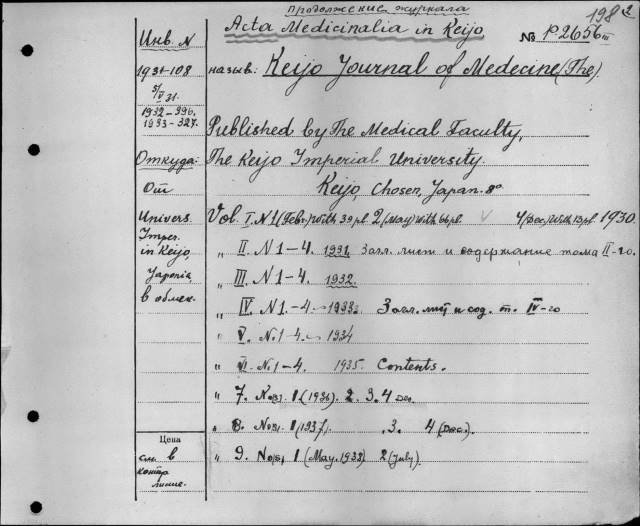 продолжение журнала
198
Acta Medicinalia in Keijo.
Инв. N
№ P-2656 III
1931-108
5/V 31.
назыв: Keijo Journal of Medecine (The).
1932-396.
1933-327.
Published by The Medical Faculty,
Откуда:
The Keijo Imperial University.
От
Keijo, Chosen, Japan. 8°
Univers.
Imper.
in Keijo,
Japonia,
в обмен.
Vol I. N 1 (Febr.) with 39 pl. 2 (May) with 66 pl. V 4 (Dec.) with 13 pl. 1930.
" II. N 1-4. 1931. Загл. лист и содержание тома II-го.
" III. N 1-4. 1932.
" IV. N 1.-4. 1933. Загл. лист и сод. т. IV-го
" V. No 1-4. 1934
" VI. No 1-4. 1935. Contents.
" 7. Nosi 1 (1936). 2. 3. 4 Dec.
" 8. Nosi. 1 (1937). .3. 4 (Dec.).
" 9. Nosi, 1 (May. 1938) 2 (July).
Цена
см. в
контр